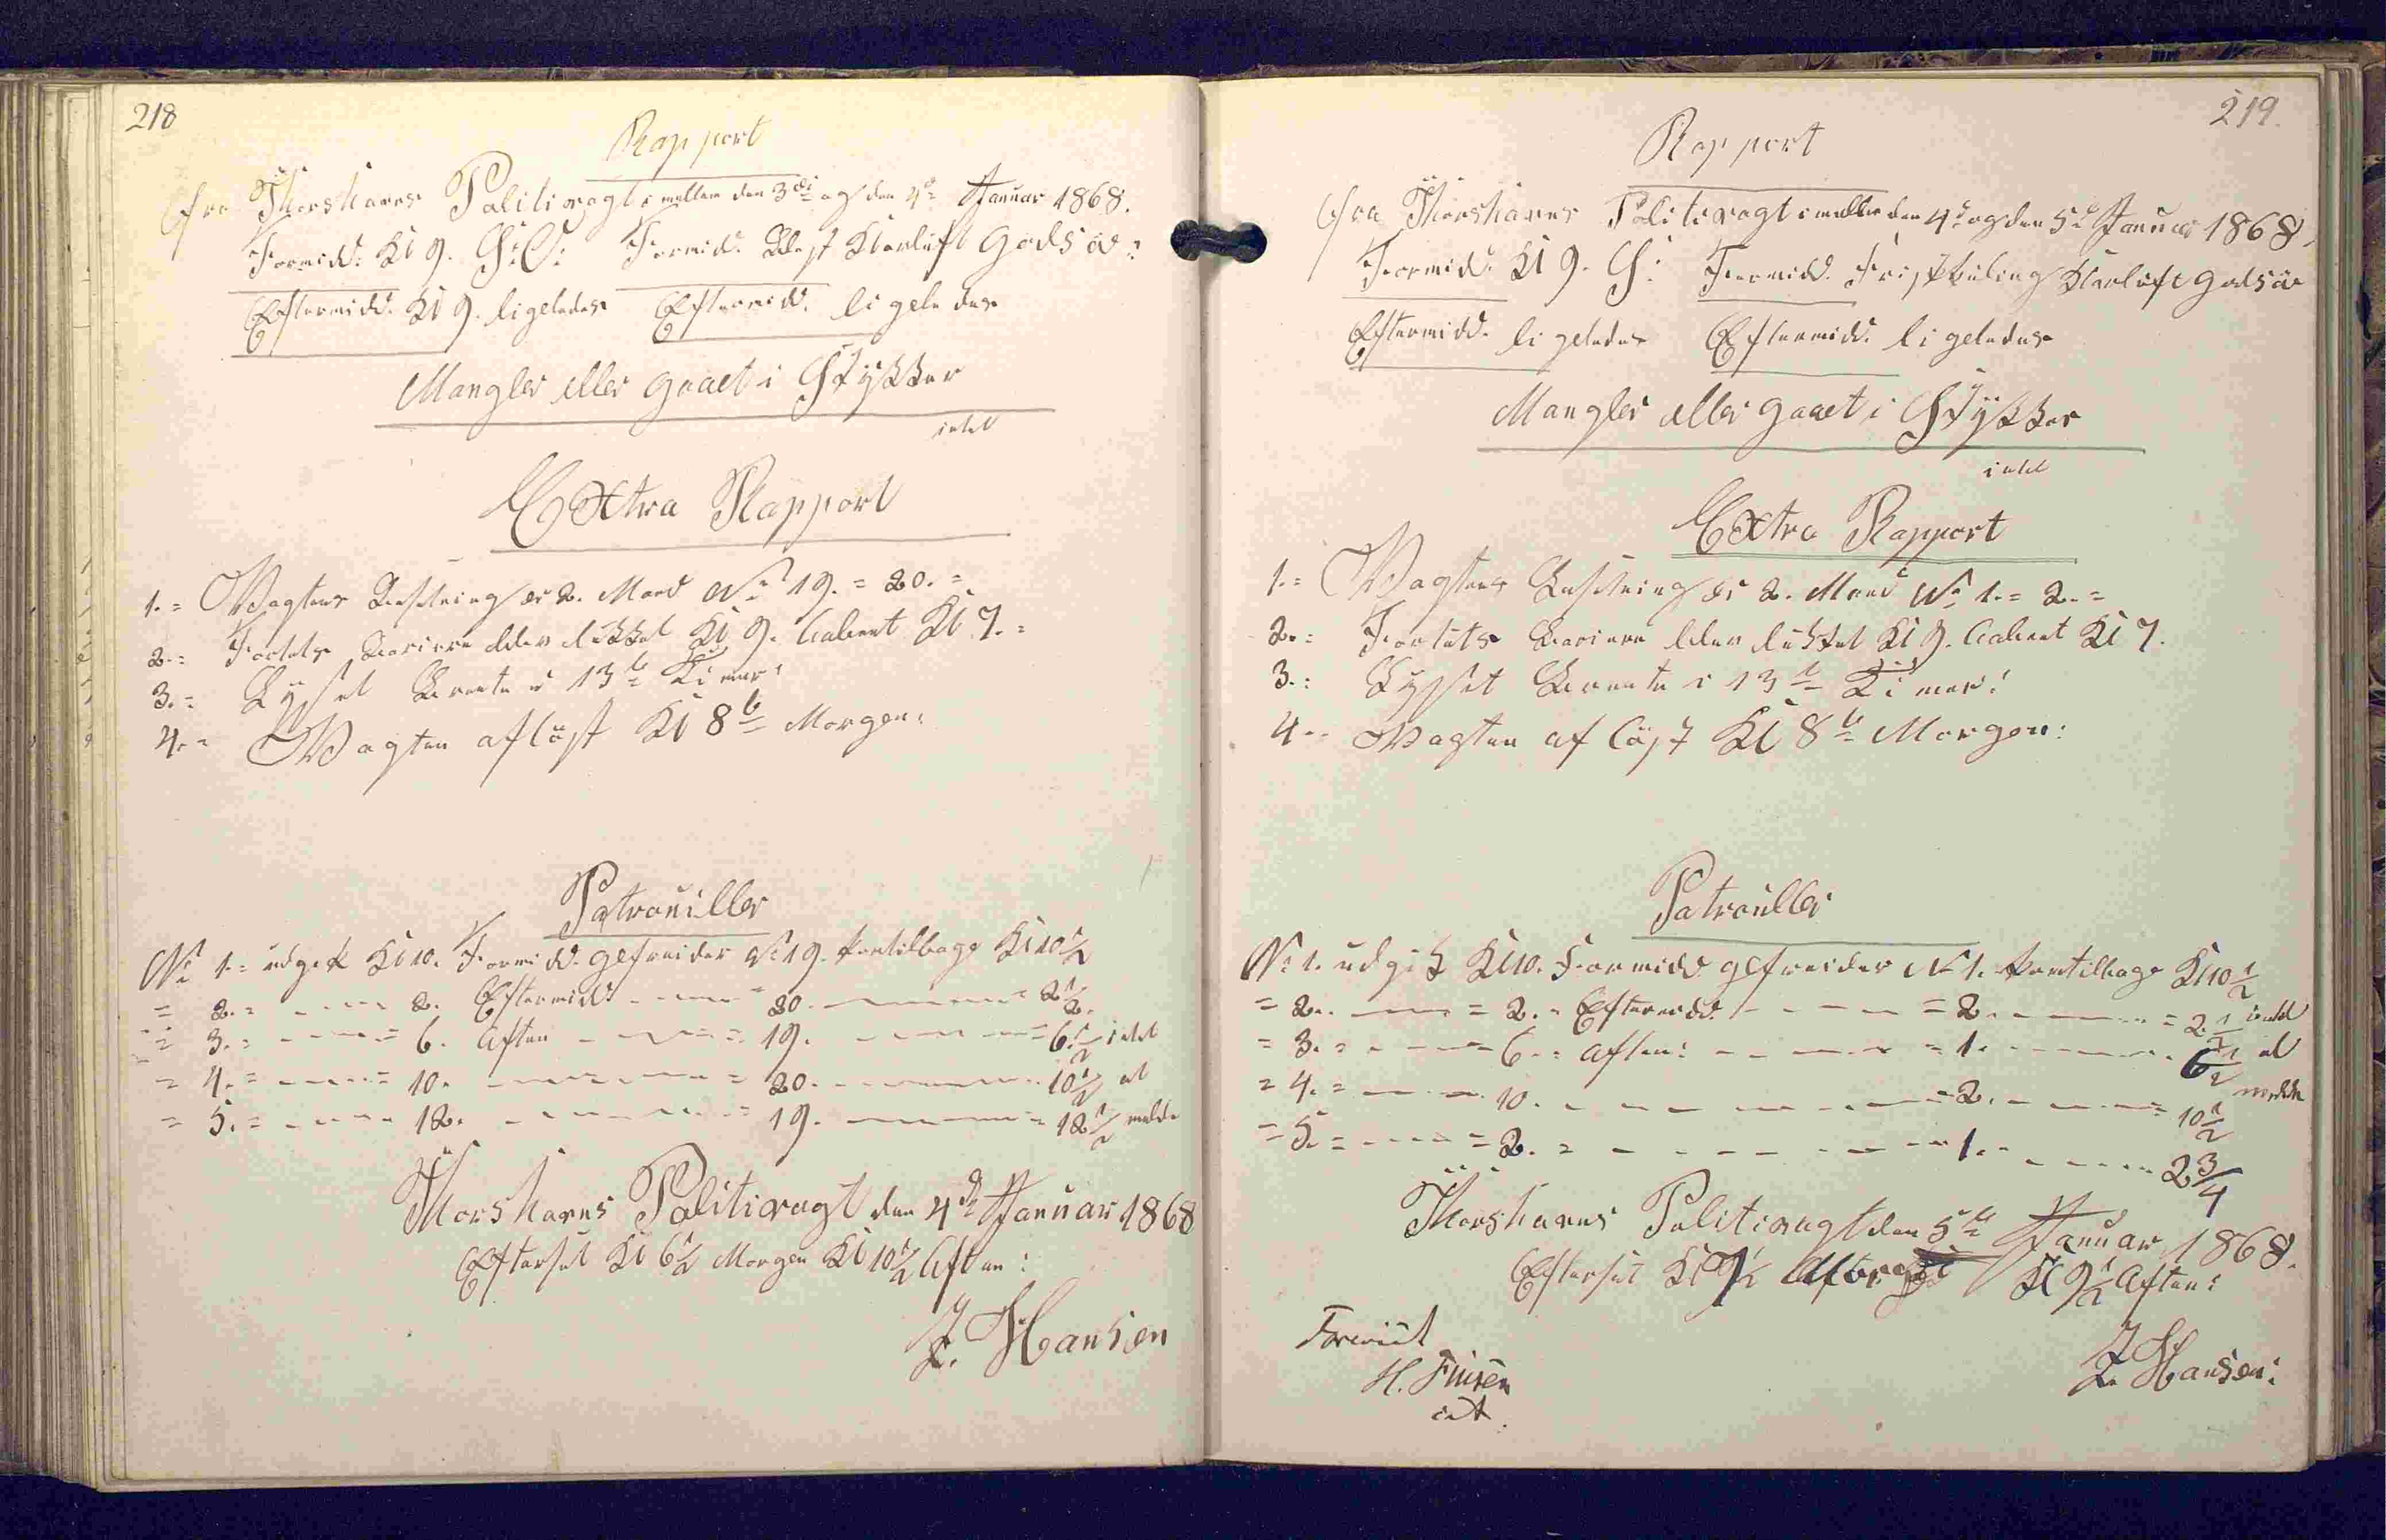 218
Rapport
fra Thorshavns Politivagt imellem den 3die og den 4de Januar 1868.
Formidd: Kl 9. S:O: Formid. Blest Klarluft Godt
Eftermidd. Kl 9. ligeledes Eftermidd. ligeledes
Mangler eller gaaet i Stykker
intet
Extra Rapport
1.= Vagtens Besetning er 2. Mand No 19. = 20. =
2.= Fortets Bariere blev lukket Kl 9. aabnet Kl 7. =
3.= Lyset Brænte i 13 Timer:
4.= Vagten afløst Kl 8 Morgen:
Patrouiller
No 1.= udgik Kl 10. Formidd. gefreider No 19. kom tilbage Kl 10 1/2
= 2. = - - - 2. Eftermidd: - - - 20. - - - 2 1/2
= 3. = - - - = 6. Aften - - - = 19. - - - = 6 1/2 intet
= 4. = - - - = 10. - - - = 20. - - - 10 1/2 at
= 5. = - - - 12. - - - = 19. - - - = 12 1/2 melde
Thorshavns Politivagt den 4de Januar 1868
Efterset Kl 6 1/2 Morgen Kl 10 1/2 Aften:
J. Hansen
219.
Rapport
fra Thorshavns Politivagt imellem den 4de og den 5te Januar 1868.
Formid. Kl 9. S: Formidd. Frisk kuling Klarluft Godt
Eftermidd. ligeledes Eftermidd. ligeledes
Mangler eller gaaet i Stykker
intet
Extra Rapport
1.= Vagtens Besetning er 2. Mand No 1. = 2. =
2.= Fortets Bariere blev lukket Kl 9. aabnet Kl 7.
3.: Lyset Brænte i 13 Timer:
4.. Vagten afløst Kl 8 Morgen:
Patrouller
No 1. udgik Kl 10. Formidd gefreider No 1. kom tilbage Kl 10 1/2
= 2.. - - - = 2. = Eftermidd. - - - = 2. - - - = 2 1/2 intet
= 3. = - - - = 6. = Aften: - - - = 1. - - - 6 1/2 at
= 4. = - - - 10. - - - = 2. - - - = 10 1/2 melde
= 5. = - - - = 2. = - - - 1. - - - 2 3/4
Thorshavns Politivagt den 5te Januar 1868.
Efterset Kl Kl 9 1/2 Aften:
J Hansen:
Forevist
H. Finsen
cst.